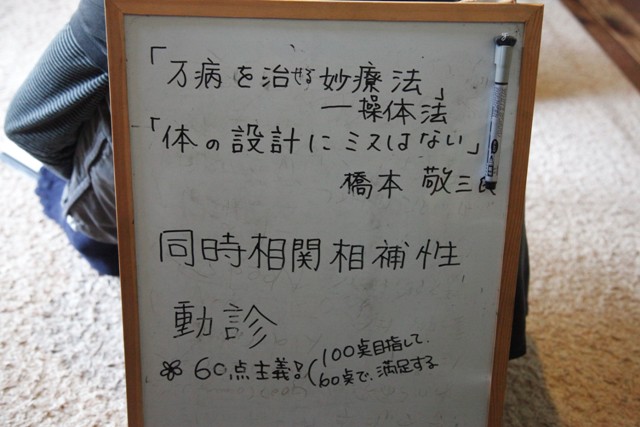 「万病を治せる妙療法」
―操体法
「体の設計にミスはない」
橋本 敬三
同時相関相補性
動診
60点主義!(100点目指して、
60点で、満足する